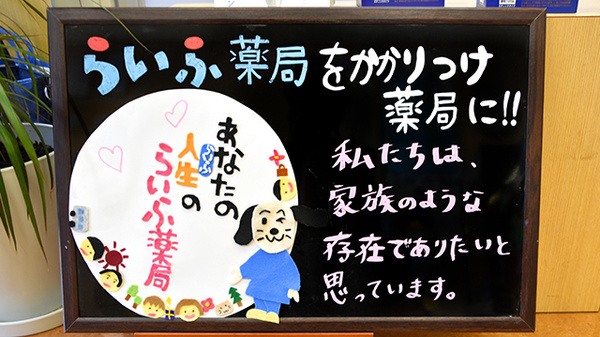 らいふ薬局をかかりつけ
薬局に!!
あなたの
人生の
らいふ
らいふ薬局
私たちは、
家族のような
存在でありたいと
思っています。